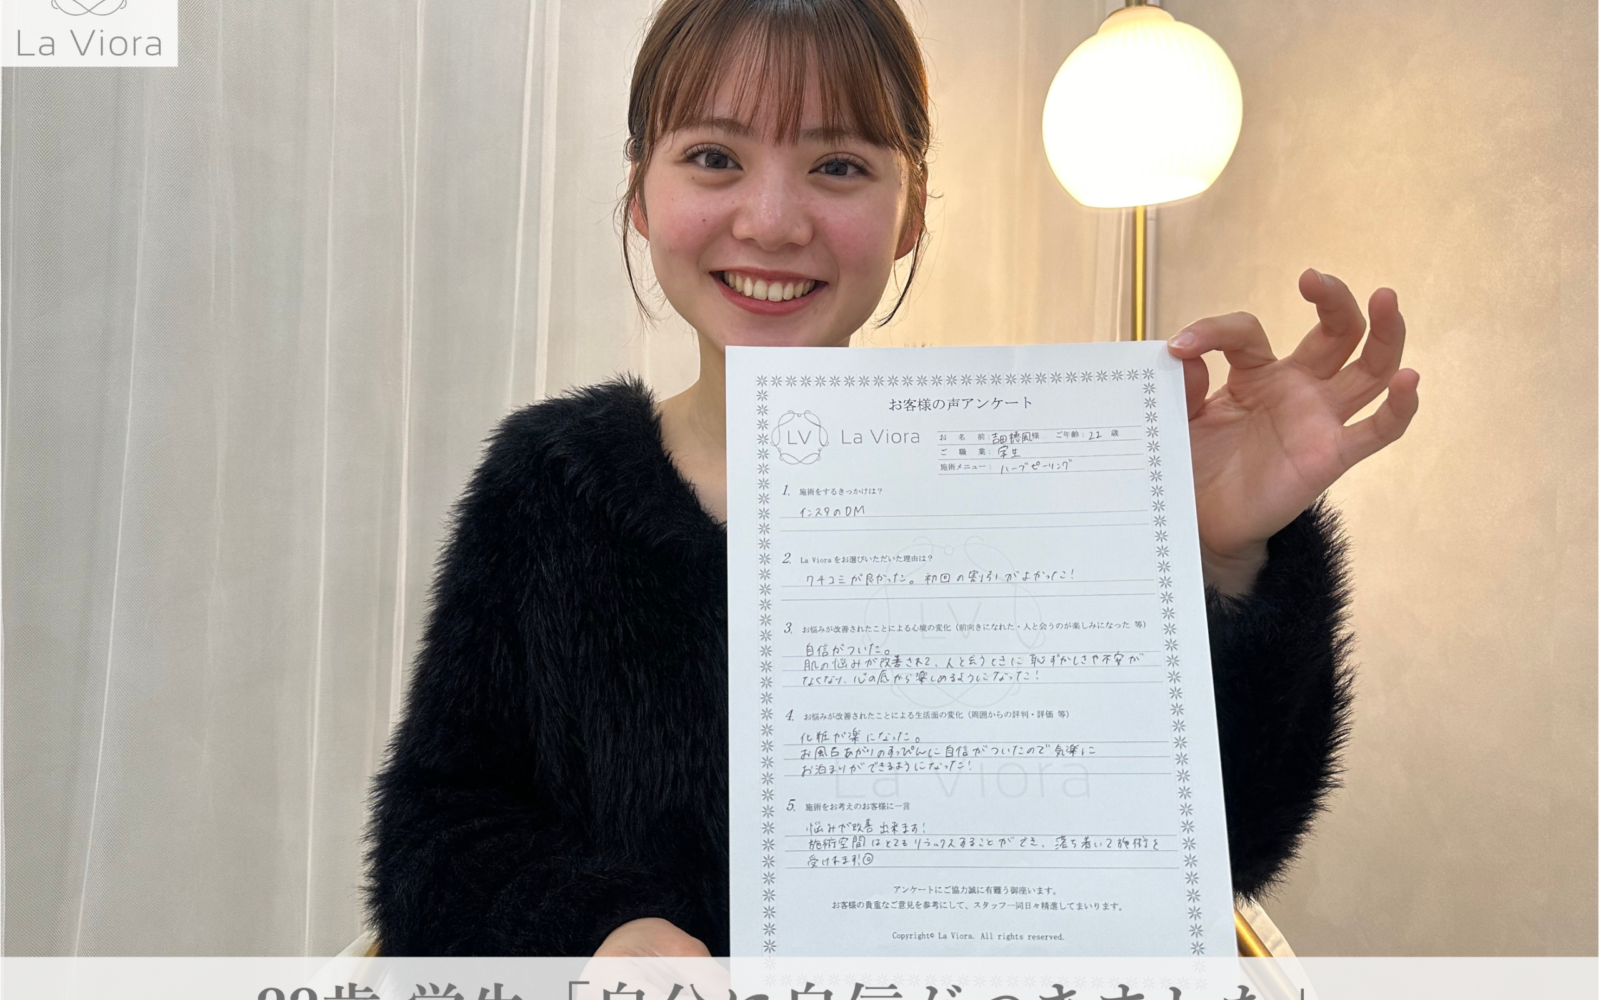 La Viora
お客様の声アンケート
LV La Viora
お 名 前：吉田橋凪様 ご年齢：22 歳
ご 職 業：学生
施術メニュー：ハーブピーリング
1. 施術をするきっかけは？
インスタのDM
2. La Vioraをお選びいただいた理由は？
クチコミが良かった。初回の割引がよかった！
3. お悩みが改善されたことによる心境の変化（前向きになれた・人と会うのが楽しみになった 等）
自信がついた。
肌の悩みが改善されて、人と会うときに恥ずかしさや不安が
なくなり、心の底から楽しめるようになった！
4. お悩みが改善されたことによる生活面の変化（周囲からの評判・評価 等）
化粧が楽になった。
お風呂あがりのすっぴんに自信がついたので気楽に
お泊まりができるようになった！
5. 施術をお考えのお客様に一言
悩みが改善出来ます！
施術空間はとてもリラックスすることができ、落ち着いて施術を
受けれます！
アンケートにご協力誠に有難う御座います。
お客様の貴重なご意見を参考にして、スタッフ一同日々精進してまいります。
Copyright© La Viora. All rights reserved.
LV
La Viora
22歳 学生「自分に自信がつきました」